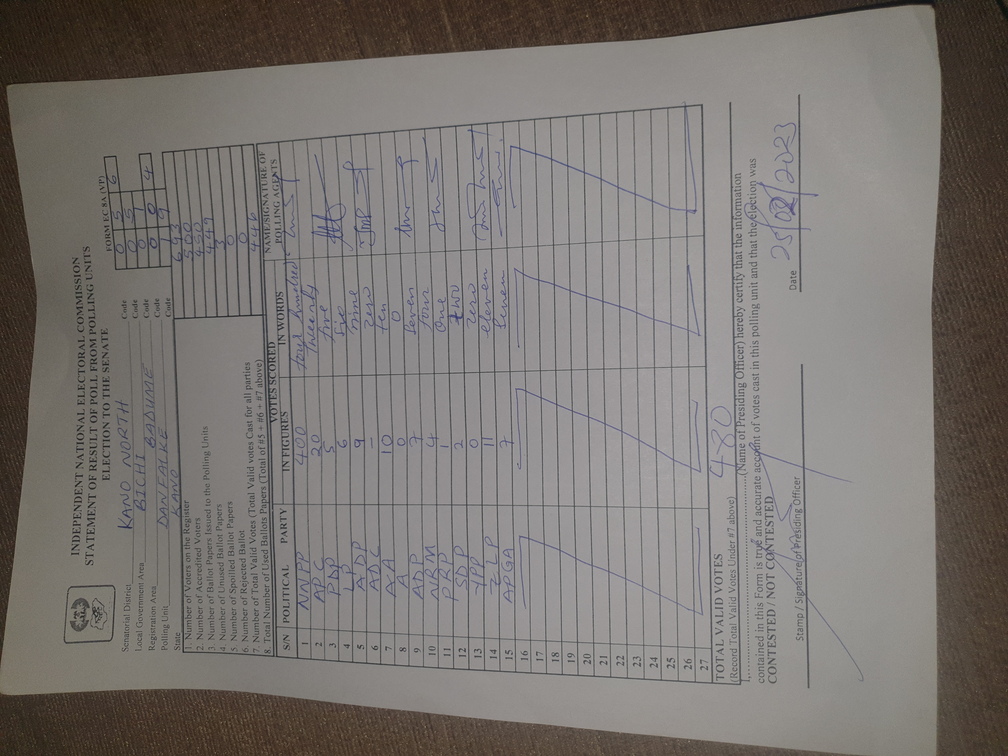 INDEPENDENT NATIONAL ELECTORAL COMMISSION
STATEMENT OF RESULT OF POLL FROM POLLING UNITS
ELECTION TO THE SENATE
FORM EC 8A (VP)
Senatorial District KANO NORTH Code 0 5 6
Local Government Area BICHI Code 0 5
Registration Area BADUME Code 0 7
Polling Unit DANFALKE Code 0 0 4
State KANO Code 1 9
1. Number of Voters on the Register 693
2. Number of Accredited Voters 500
3. Number of Ballot Papers Issued to the Polling Units 450
4. Number of Unused Ballot Papers 449
5. Number of Spoilled Ballot Papers 3
6. Number of Rejected Ballot 0
7. Number of Total Valid Votes (Total Valid votes Cast for all parties 0
8. Total Number of Used Ballots Papers (Total of #5 + #6 + #7 above) 446
S/N POLITICAL PARTY VOTES SCORED NAME/SIGNATURE OF POLLING AGENTS
IN FIGURES IN WORDS
1 NNPP 400 four hundred
2 APC 20 Twenty
3 PDP 5 five
4 LP 6 Six
5 ADP 9 nine
6 ADC – zero
7 AA 10 ten
8 A 0 0
9 ADP 7 Seven
10 NRM 4 four
11 PRP 1 One
12 SDP 2 two
13 YPP 0 zero
14 ZLP 11 eleven
15 APGA 7 Seven
16
17
18
19
20
21
22
23
24
25
26
27
TOTAL VALID VOTES 480
(Record Total Valid Votes Under #7 above)
I,..........................................(Name of Presiding Officer) hereby certify that the information
contained in this Form is true and accurate account of votes cast in this polling unit and that the election was
CONTESTED / NOT CONTESTED
Stamp / Signature of Presiding Officer Date 25/02/2023